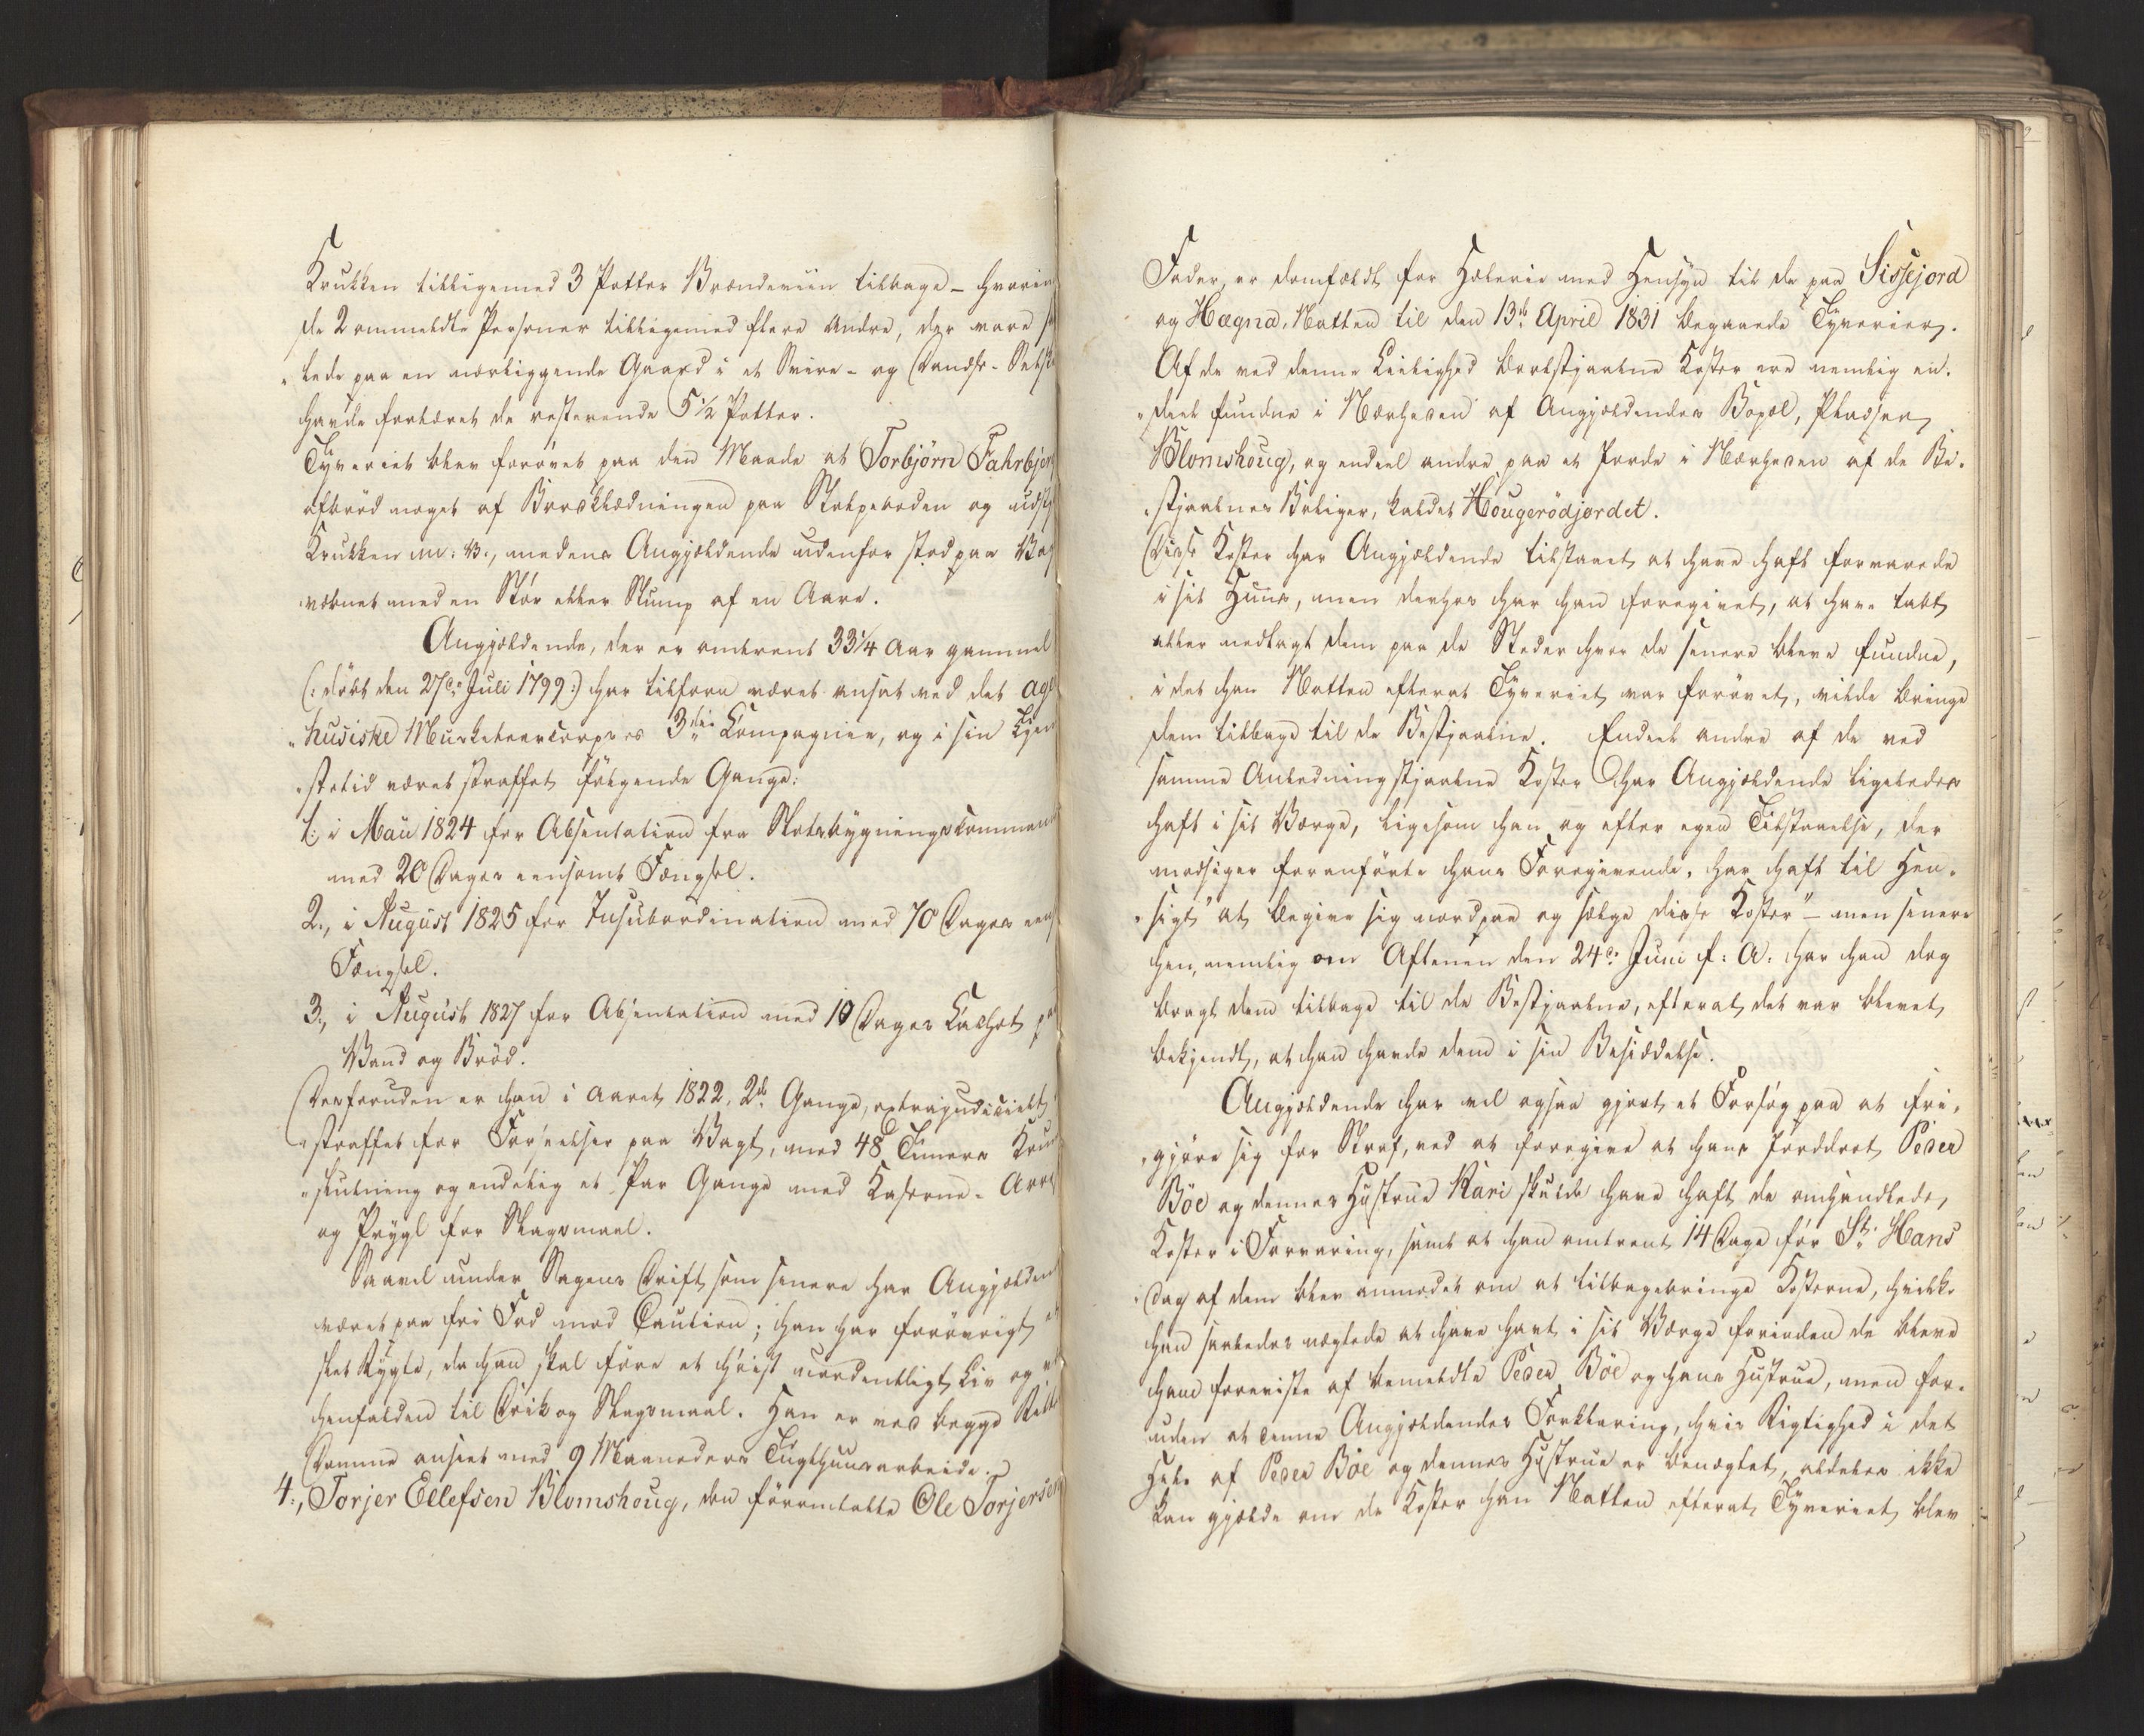 Krukken tilligemed 3 Potter Brændeviin tilbage – hvorim
de 2 ommeldte Personer tilligemed flere Andre, der vare
„lede paa en nærliggende Gaard i et Svire- og Dandse-Selsk
havde fortæret de resterende 5 1/2 Potter.
Tyveriet blev forøvet paa den Maade at Torbjörn Fahrbjør
afbrød noget af Bordklædningen paa Stolpeboden og udst
Krukken m: B:, medens Angjældende udenfor stod paa
væbnet med en Stør eller Stump af en Aare.
Angjældende, der er omtrent 33 1/4 Aar gammel
(: døbt den 27de Juli 1799:) har tilforn været ansat ved det ag
„husiske Musketeercorpses 3die Compagnie, og i sin Tjen
„stetid været straffet følgende Gange:
1:, i Mai 1824 for Absentation fra Slotsbygningscommand
med 20 Dages eensomt Fængsel.
2:, i August 1825 for Insubordination med 70 Dages een
Fængsel.
3:, i August 1827 for Absentation med 10 Dages Cachot
Vand og Brød.
Desforuden er han i Aaret 1822, 2de Gange, extrajudicielt
„straffet for Forseelser paa Vagt, med 48 Timers
„slutning og endelig et Par Gange med Kaserne-Arre
og Prygl for Slagsmaal.
Saavel under Sagens Drift som senere har Angjælden
været paa fri Fod mod Caution; han har forøvrigt
slet Rygte, da han skal føre et høist uordentligt Liv og
henfalden til Drik og Slagsmaal. Han er ved begge
Domme anseet med 9 Maaneders Tugthuusarbeide.
4:, Torjer Ellefsen Blomshoug, den føromtalte Ole Torjersen
Fader, er domfældt for Hæleri med Hensyn til de paa Sissejord
og Hægna, Natten til den 13de April 1831 begaaede Tyverier.
Af de ved denne Leilighed bortstjaalne Koster ere nemlig en-
„deel fundne i Nærheden af Angjældendes Bopæl, Pladsen
Blomshoug, og endeel andre paa et Jorde i Nærheden af de Be-
„stjaalnes Boliger, kaldet Hougerödjordet.
Disse Koster har Angjældende tilstaaet at have haft forvarede
i sit Huus, men derhos har han foregivet, at have tabt
eller nedlagt dem paa de Steder hvor de senere bleve fundne,
idet han Natten efterat Tyveriet var forøvet, vilde bringe
dem tilbage til de Bestjaalne. Endeel andre af de ved
samme Anledning stjaalne Koster har Angjældende ligeledes
haft i sit Værge, ligesom han og efter egen Tilstaaelse, der
modsiger foranførte hans Foregivende, har haft til Hen-
„sigt "at begive sig nordpaa og sælge disse Koster" – men senere
hen, nemlig om Aftenen den 24de Juni f: A: har han dog
bragt dem tilbage til de Bestjaalne, efterat det var blevet
bekjendt, at han havde dem i sin Besiddelse.
Angjældende har vel ogsaa gjort et Forsøg paa at fri-
„gjøre sig for Straf, ved at foregive at hans Jorddrot Peder
Böe og dennes Hustrue Kari skulde have haft de omhandlede,
Koster i Forvaring, samt at han omtrent 14 Dage før St. Hans
„Dag af dem blev anmodet om at tilbagebringe Kosterne, hvilke
han saaledes nægtede at have havt i sit Værge forinden de bleve
ham foreviste af bemeldte Peder Böe og hans Hustrue, men for-
uden at denne Angjældendes Forklaring, hvis Rigtighed i det
Hele af Peder Böe og dennes Hustrue er benægtet, aldeles ikke
kan gjælde om de Koster han Natten efterat Tyveriet blev